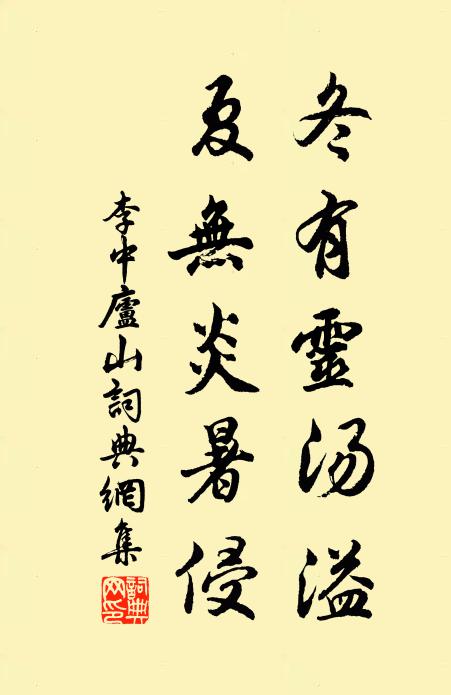 冬有靈汤溢
夏無炎暑侵
李中廬山詞典網集
詞典网印